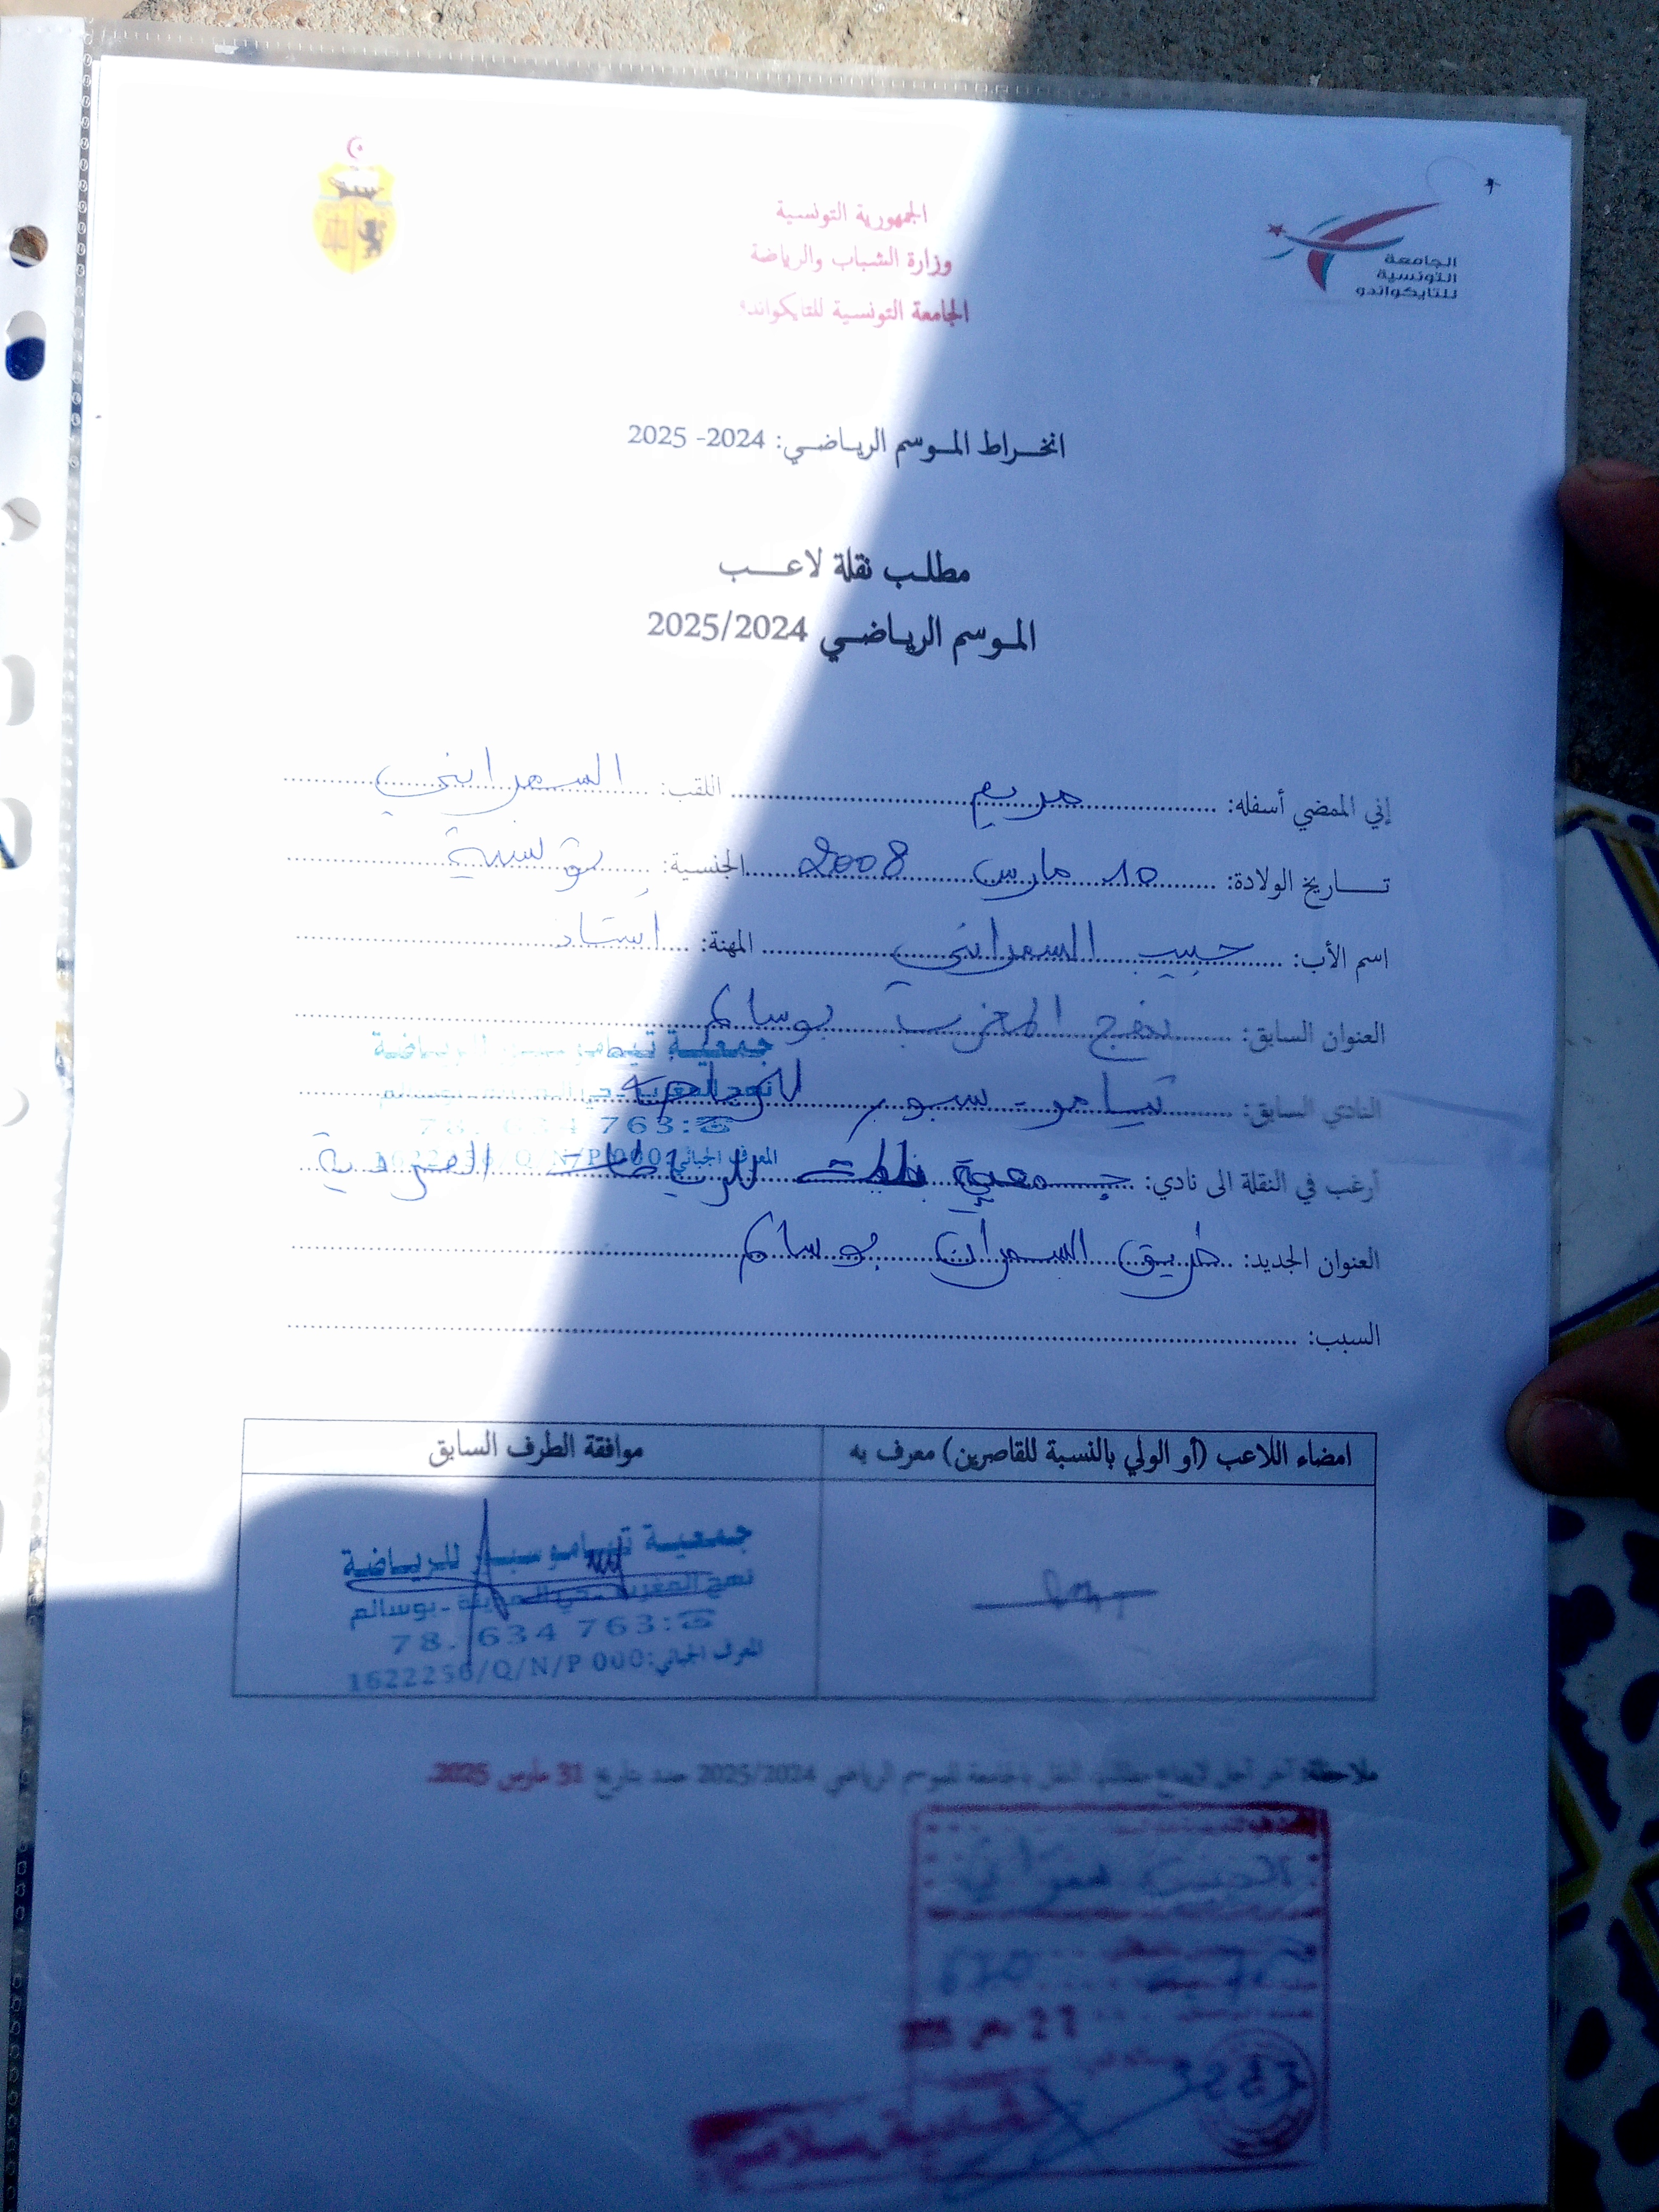 الجمهورية التونسية
وزارة الشباب والرياضة
الجامعة التونسية للتايكواندو
الجامعة
التونسية
للتايكواندو
انخراط الموسم الرياضي: 2024- 2025
مطلب نقلة لاعب
الموسم الرياضي 2025/2024
إني الممضي أسفله: مريم اللقب: السمراني
تاريخ الولادة: 10 مارس 2008 الجنسية: تونسية
اسم الأب: حبيب السمراني المهنة: أستاذ
العنوان السابق: نهج المغرب بوسالم
النادي السابق: تيامو سبور
أرغب في النقلة الى نادي: جمعية للرياضات الفردية
العنوان الجديد: طريق السمران بوسالم
السبب:
جمعية
78. 634 763:☎
المعرف الجبائي:000 1622256/Q/N/P
امضاء اللاعب (أو الولي بالنسبة للقاصرين) معرف به
موافقة الطرف السابق
جمعية تياموسبور للرياضة
نهج المغرب حي المدينة - بوسالم
78. 634 763:☎
المعرف الجبائي:000 1622256/Q/N/P
ملاحظة: آخر أجل لإيداع مطالب النقل بالجامعة للموسم الرياضي 2025/2024 حدد بتاريخ 31 مارس 2025.